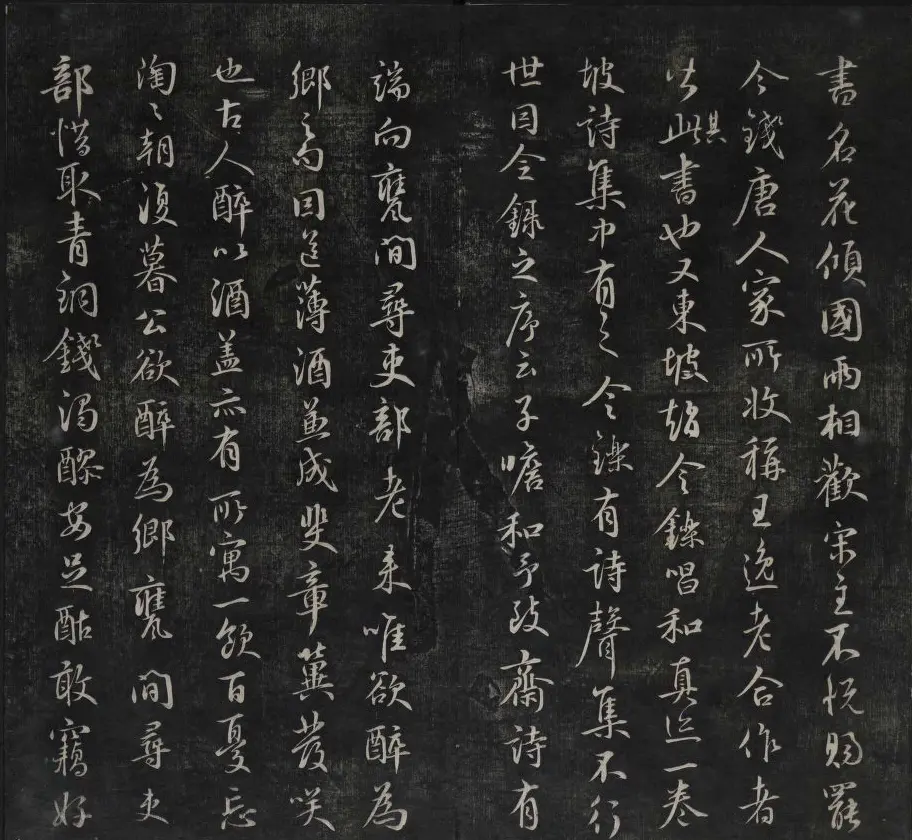 書名花傾國兩相歡宋主不悅賜罷
今錢唐人家所收稱王逸老合作者
皆此書也又東坡趙令鑠唱和真迹一卷
坡詩集中有之令鑠有詩聲集不行
世因全錄之序云子瞻和予致齋詩有
端向甕間尋吏部老來唯欲醉為
鄉之句因送薄酒兼成斐章冀發咲
也古人醉以酒蓋亦有所寓一飲百憂忘
淘淘朝復暮公欲醉為鄉甕間尋吏
部惜取青銅錢濁醪安足酤敢竊好